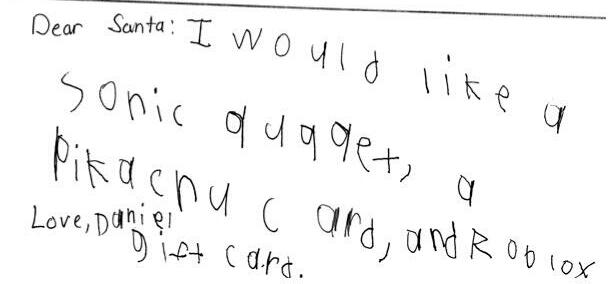 Dear Santa: I would like a
Sonic a
Pikachu card, and Roblox
Love, Daniel
gift card.